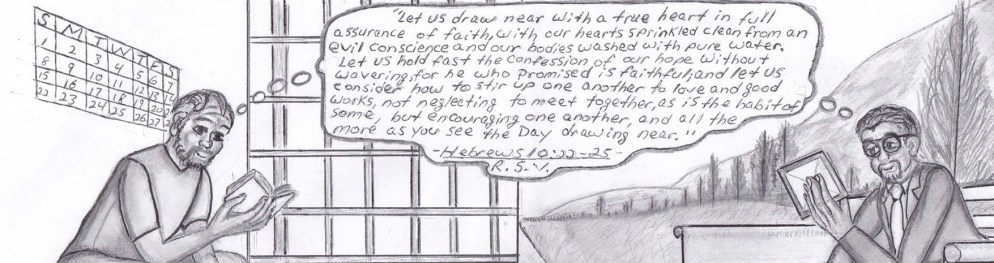 S M T W T F S
1 2 3 4 5 6 7
8 9 10 11 12 13
15 16 17 18 19 20
22 23 24 25 26 27
"Let us draw near with a true heart in full
assurance of faith, with our hearts sprinkled clean from an
evil conscience and our bodies washed with pure water.
Let us hold fast the confession of our hope without
wavering, for he who promised is faithful; and let us
consider how to stir up one another to love and good
works, not neglecting to meet together, as is the habit of
some, but encouraging one another, and all the
more as you see the Day drawing near."
-Hebrews 10:22-25-
R.S.V.